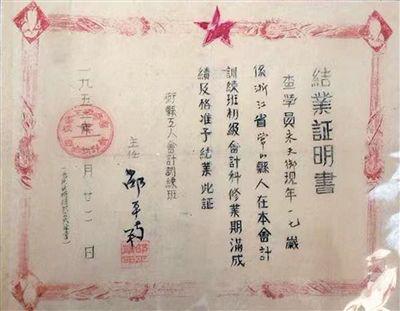 結業証明書
查學員未夫衡現年一七歲
係浙江省常山縣人在本會計
訓練班初級會計科修業期滿成
績及格准予結業此証
衢縣工人會計訓練班
主任
一九五二年 月廿二日